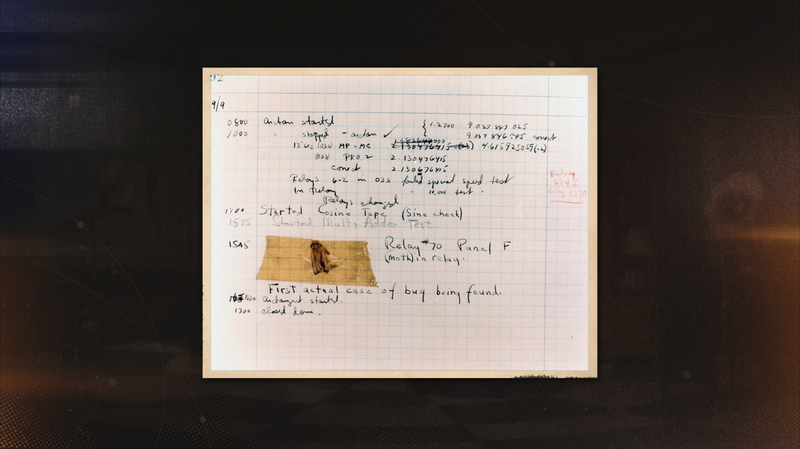 92
9/9
0800 Antan started
1000 " stopped - antan ✓ { 1.2700 9.037 847 025
9.037 846 995 correct
13" UC (032) MP - MC 4.615925059(-2)
033 PRO 2 2.130476415
correct 2.130676415
Relays 6-2 in 033 failed special speed test
In Relay " 10,000 test.
Relays changed
Started Cosine Tape (Sine check)
1525 Started Mult+Adder Test.
1545 Relay #70 Panel F
(moth) in relay.
First actual case of bug being found.
antangent started.
1700 closed down.